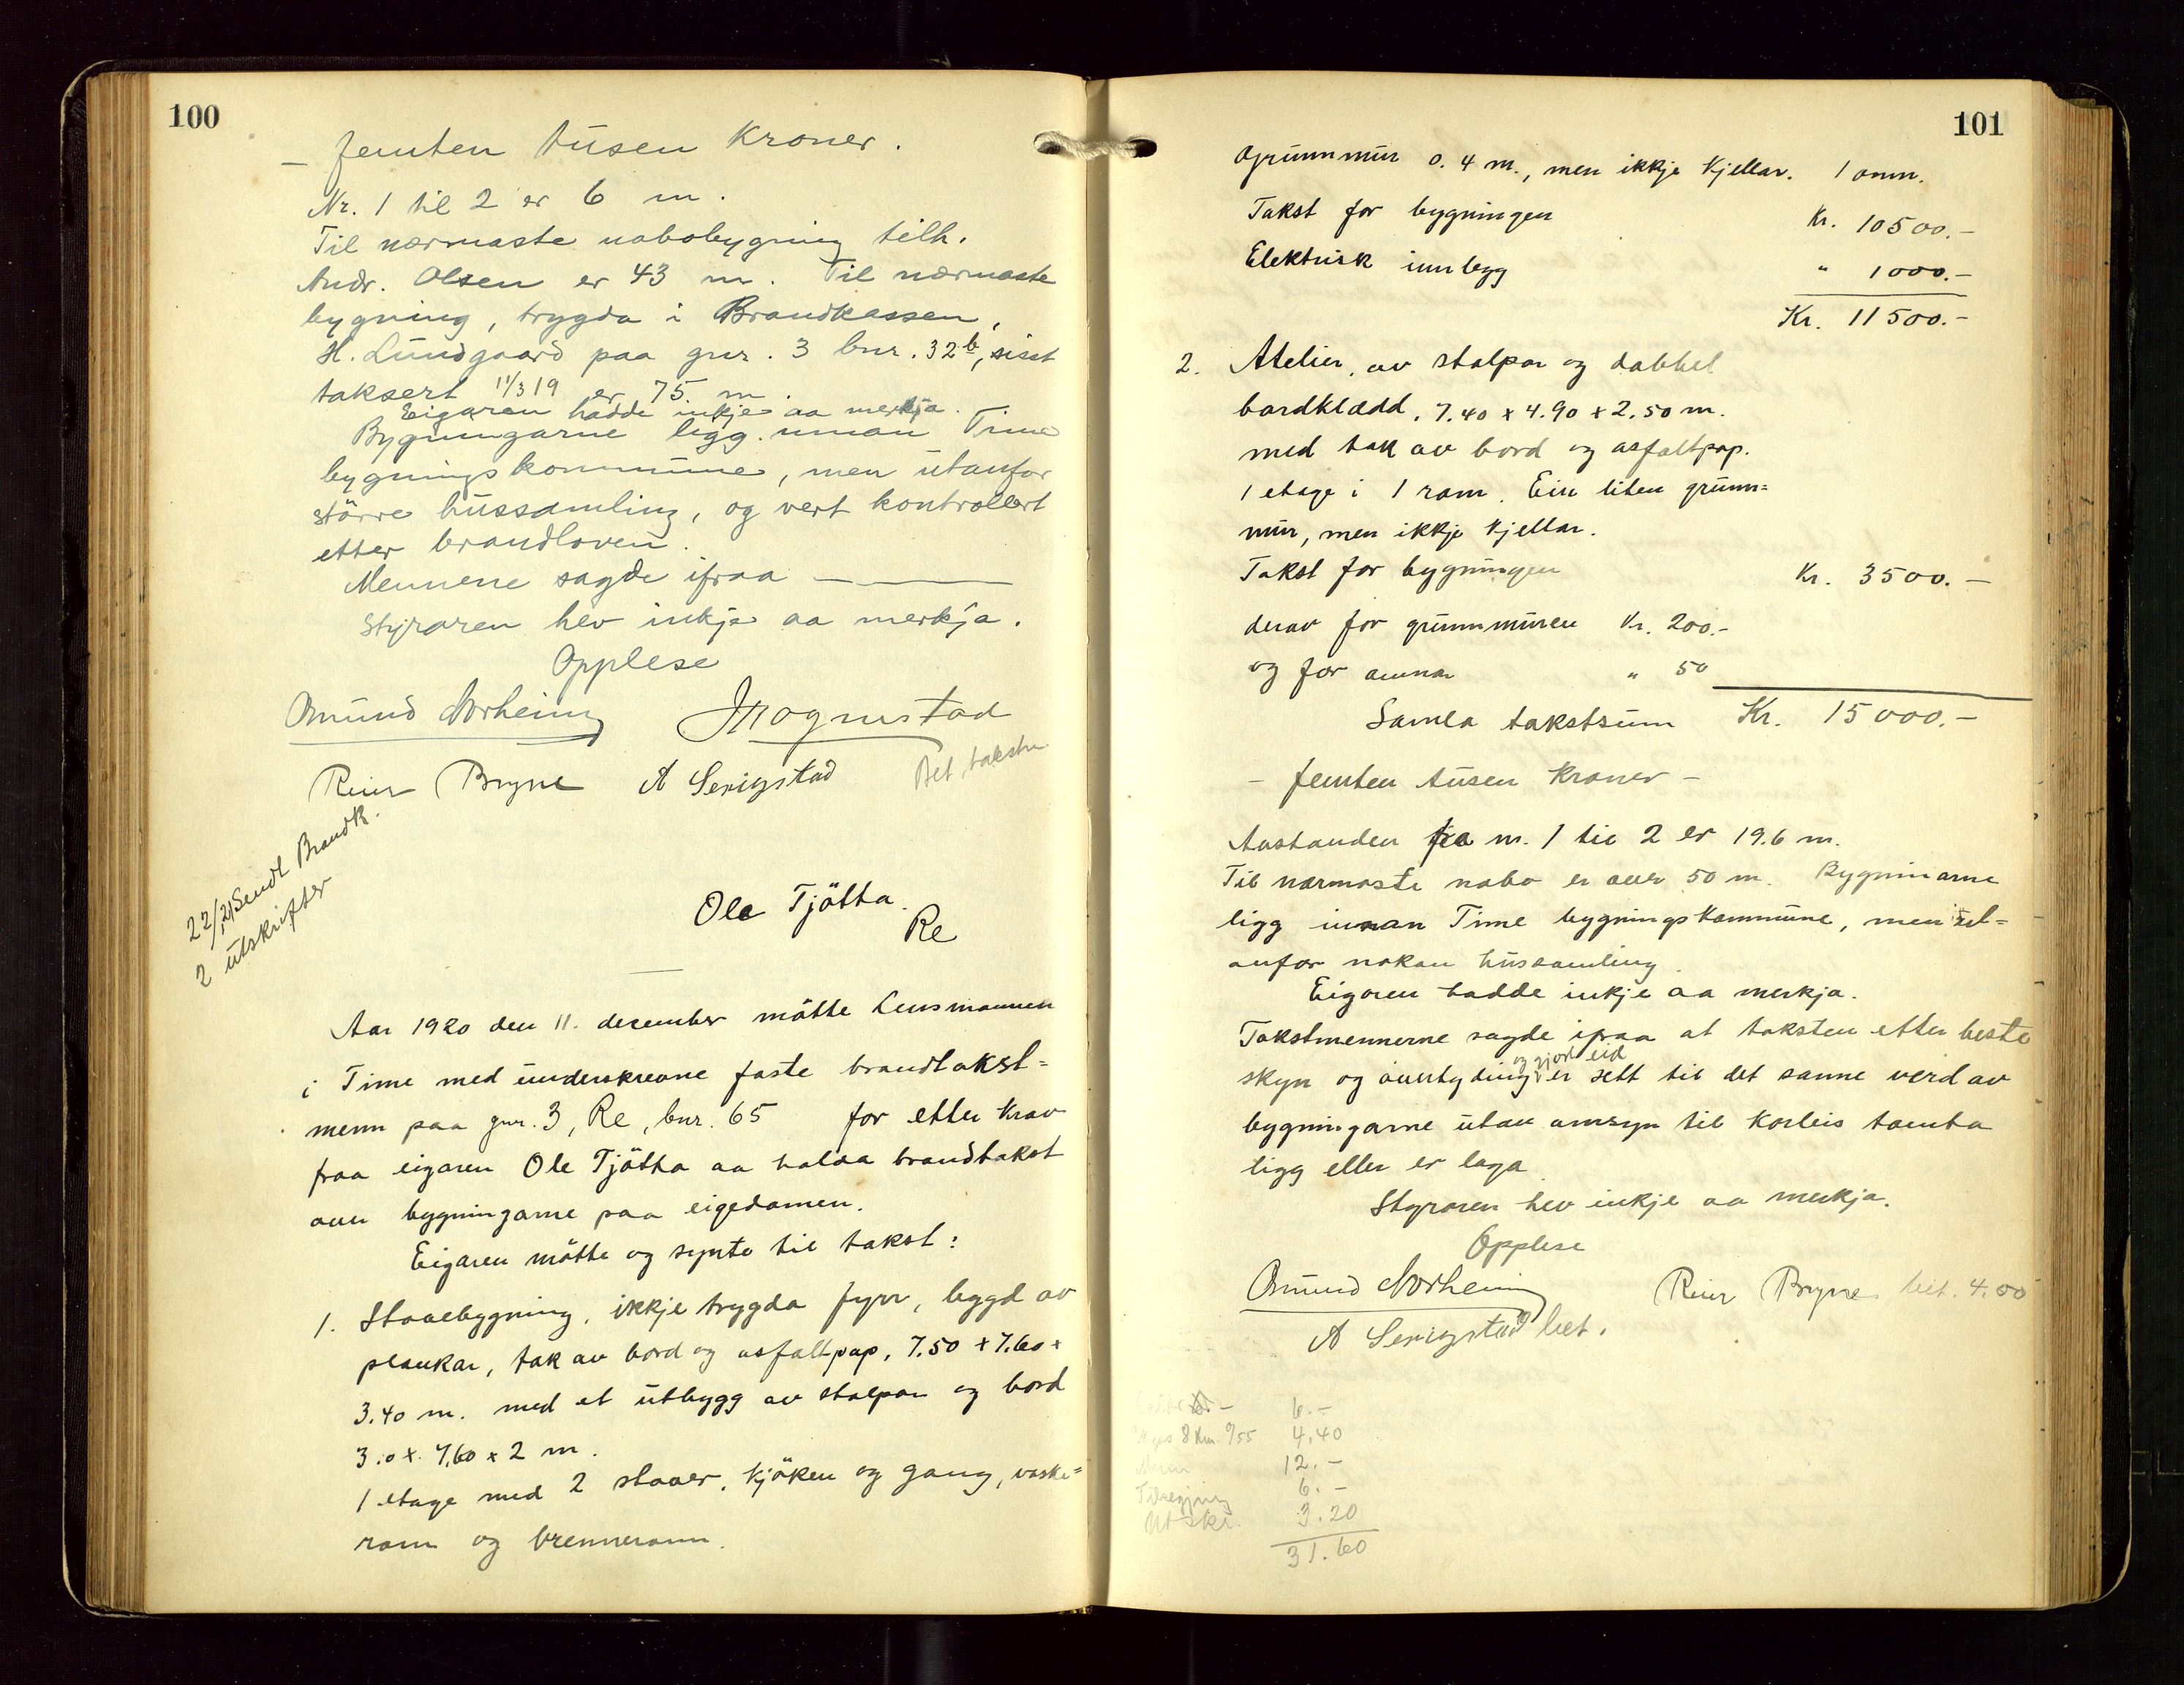 100
– femten tusen kroner.
Nr. 1 til 2 er 6 m.
Til nærmaste nabobygning tilh.
Andr. Olsen er 43 m. Til nærmaste
bygning, trygda i Brandkassen,
H. Lundgaard paa gnr. 3 bnr. 32b, sist
taksert 11/3 19 er 75 m.
Eigaren hadde inkje aa merkja.
Bygningarne ligg innan Time
bygningskommune, men utanfor
större hussamling, og vert kontrollert
etter brandloven.
Mennene sagde ifraa — ——
Styraren hev inkje aa merkja.
Opplese
Omund Norheim
Reier Bryne A Serigstad Bet takstn.
22/1 21 Sendt Brandk.
2 utskrifter
Ole Tjötta.
Re
Aar 1920 den 11. desember mötte Lensmannen
i Time med underskrevne faste brandtakst=
menn paa gnr. 3, Re, bnr. 65 for etter krav
fraa eigaren Ole Tjötta aa halda brandtakst
over bygningarne paa eigedomen.
Eigaren mötte og synte til takst:
1. Stovebygning, ikkje trygda fyrr, bygd av
plankar, tak av bord og asfaltpap, 7.50 x 7.60 x
3.40 m. med et utbygg av stolpar og bord
3.0 x 7,60 x 2 m.
1 etage med 2 stover, kjöken og gang, vaske=
rom og brennerom.
101
Grunnmur 0.4 m., men ikkje kjellar. 1 omn.
Takst for bygningen Kr. 10500.–
Elektrisk innlegg " 1000.–
Kr. 11500.–
2. Atelier, av stolpar og dobbel
bordklædd, 7.40 x 4.90 x 2.50 m.
med tak av bord og asfaltpap.
1 etage i 1 rom. Ein liten grunn=
mur, men ikkje kjellar.
Takst for bygningen Kr. 3500.–
derav for grunnmuren Kr. 200.–
og for omnar " 50
Samla takstsum Kr. 15000.–
– femten tusen kroner –
Avstanden fra nr. 1 til 2 er 19.6 m.
Til nærmaste nabo er over 50 m. Bygninarne
ligg innan Time bygningskommune, men ut=
anfor nokon hussamling.
Eigaren hadde inkje aa merkja.
Takstmennerne sagde ifraa at taksten etter beste
og gjort eid
skyn og overtyding er sett til det sanne verd av
bygningarne utan omsyn til korleis tomta
ligg eller er laga.
Styraren hev inkje aa merkja.
Opplese
Omund Norheim Reier Bryne bet. 4.00
A Serigstad bet.
6.–
8 km. 0/55 4,40
12.–
6.–
Utskr. 3.20
31.60